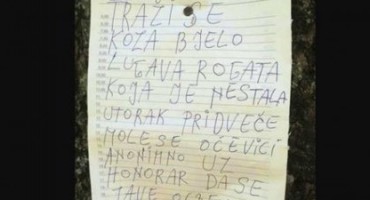 TRAŽI SE
KOZA BJELO
ŽUTAVA ROGATA
KOJA JE NESTALA
UTORAK PRIDVEČE
MOLE SE OČEVICI
ANONIMNO UZ
HONORAR DA SE
JAVE